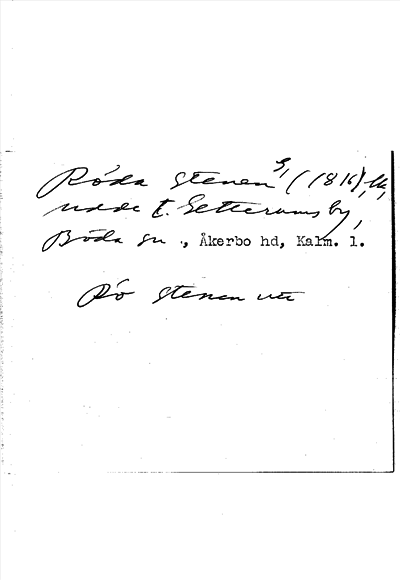 Röda stenen S, (1816),
udde t. Setterums by,
Böda sn., Åkerbo hd, Kalm. l.
Rö stenen